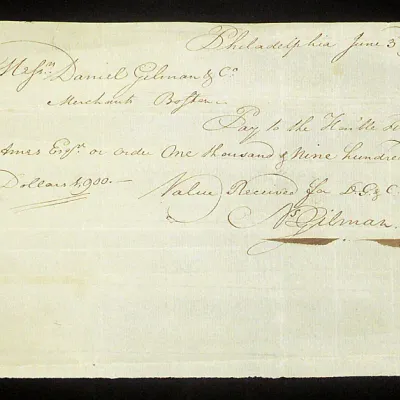 Philadelphia June 3
Messrs Daniel Gilman & Co
Merchants Boston
Pay to the Honble
Ames Esqr or order One thousand & Nine hundred
Dollars 1,900.—
Value Received for D G & C
Ns Gilman.